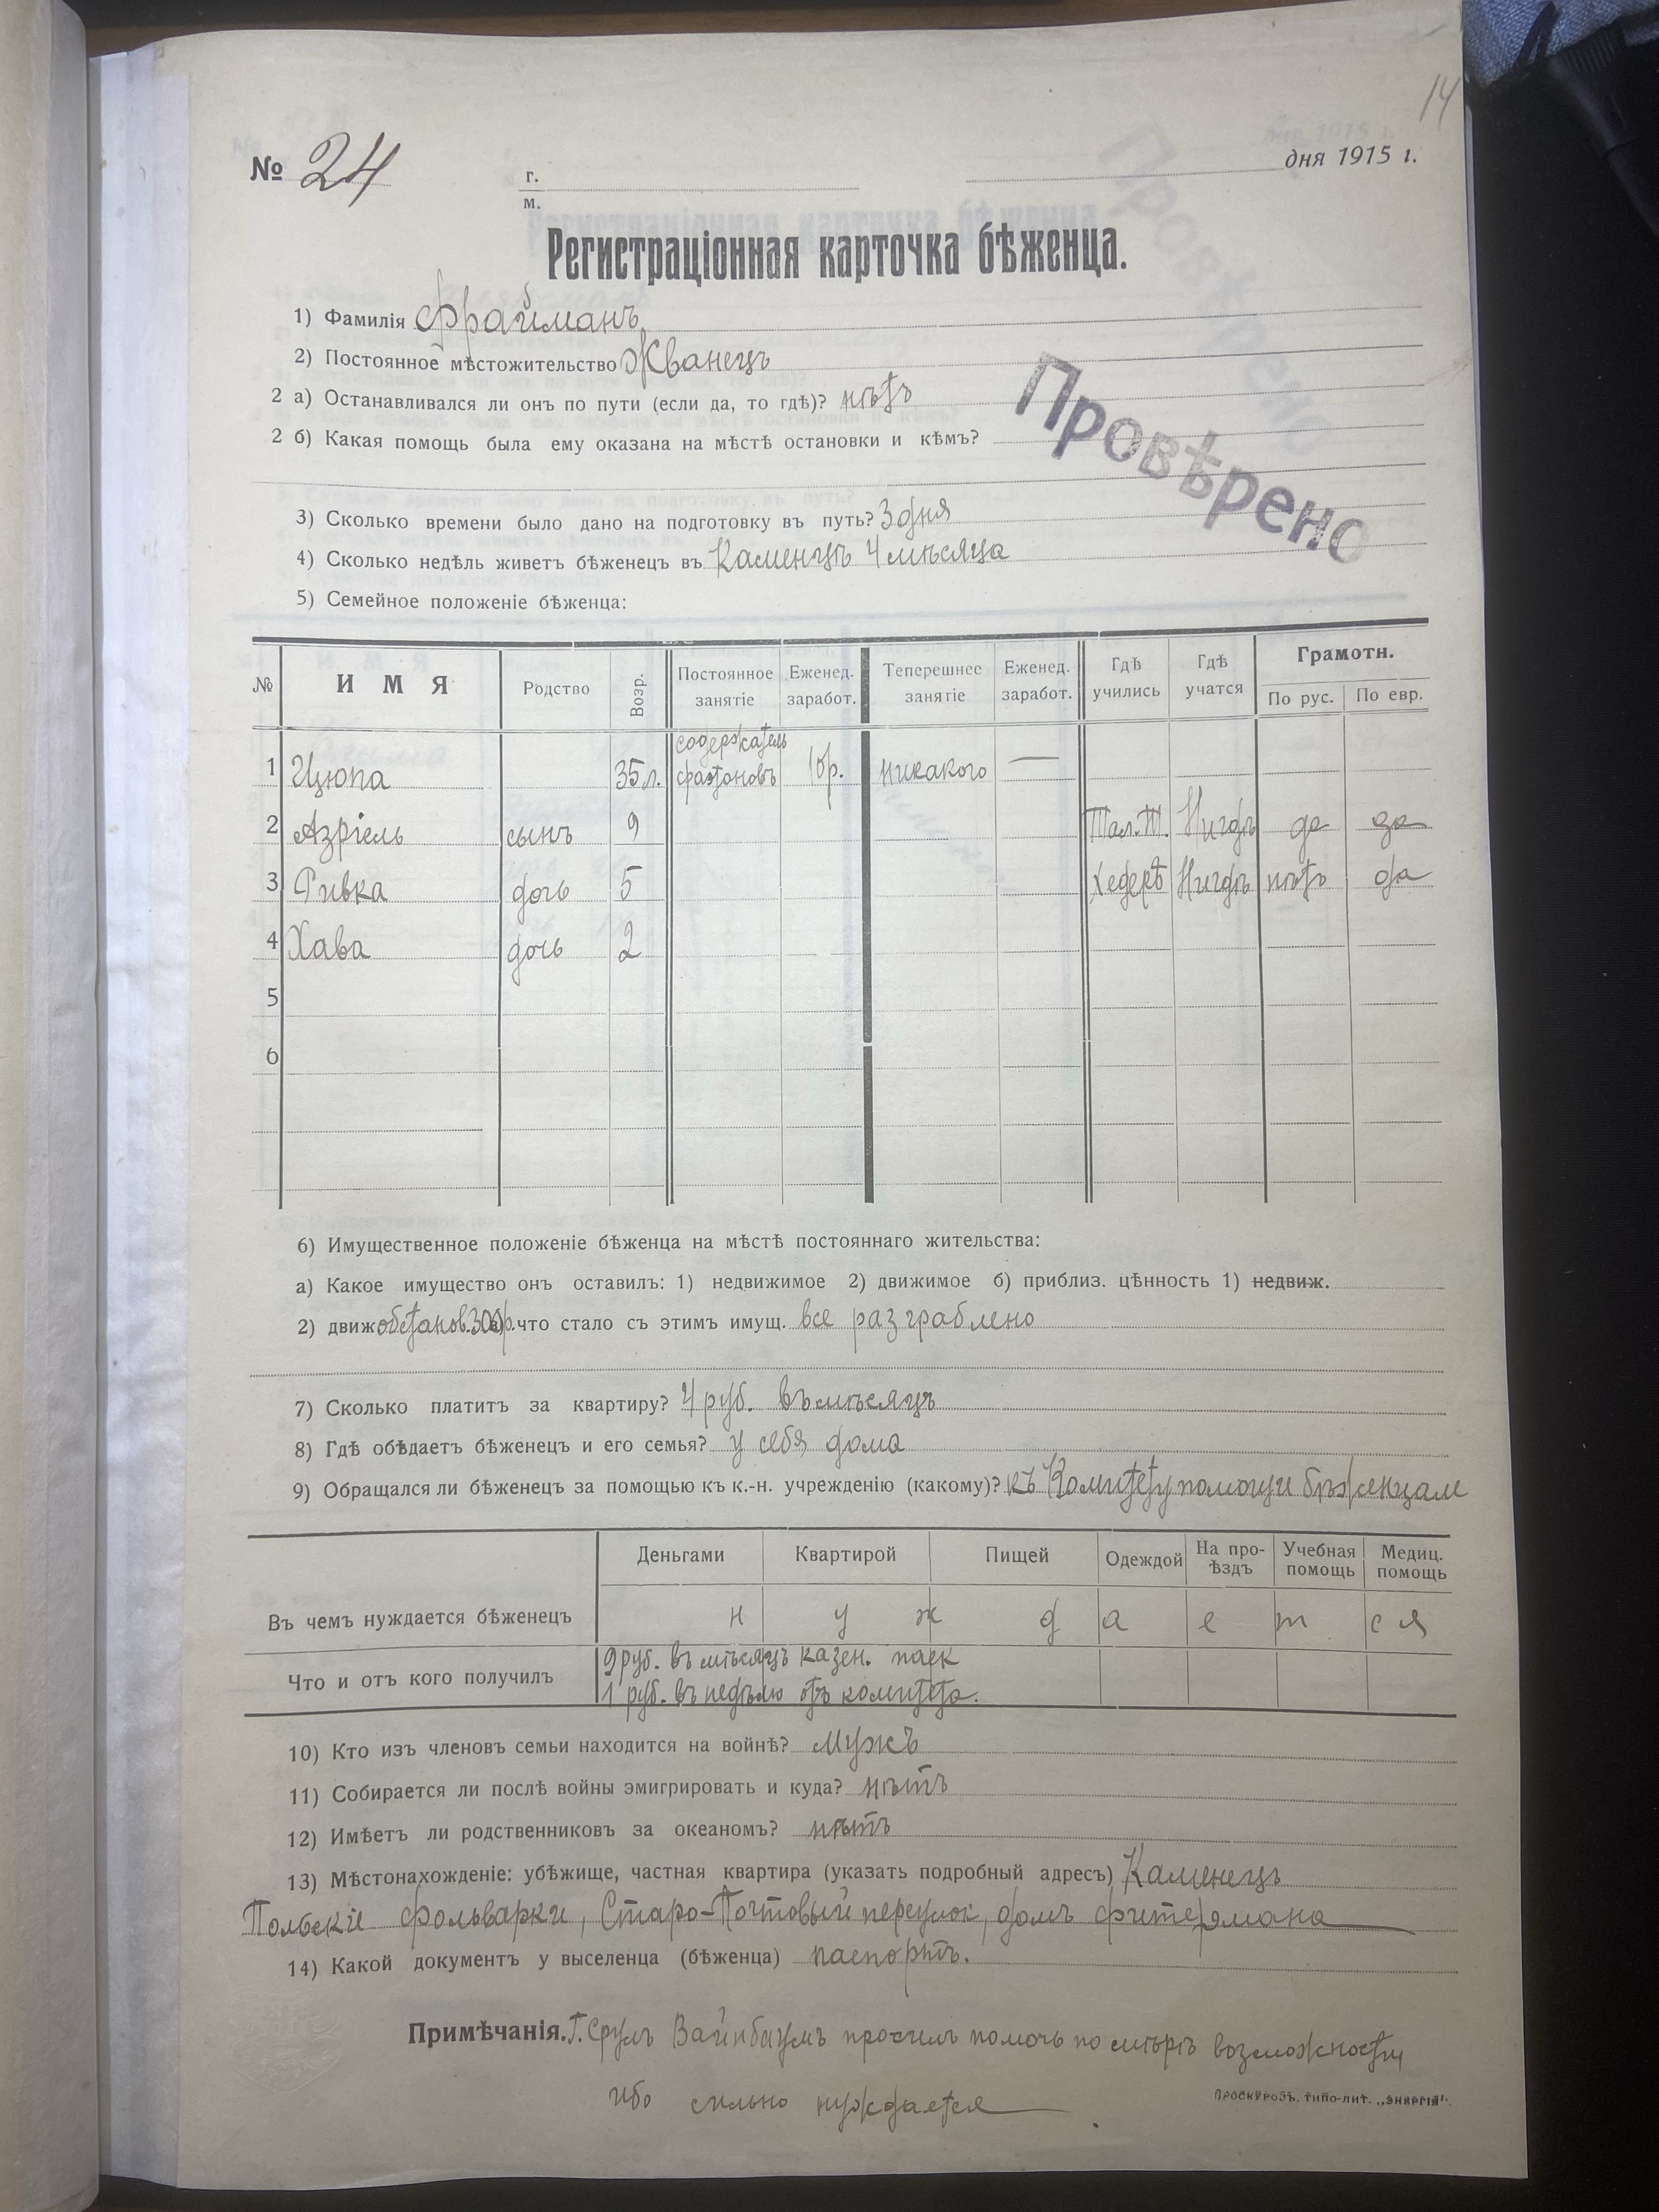 14
№ 24
г.
м.
дня 1915 г.
Регистраціонная карточка бѣженца.
1) Фамилія Фрайманъ
2) Постоянное мѣстожительство Жванецъ
2 а) Останавливался ли онъ по пути (если да, то гдѣ)? нѣтъ
2 б) Какая помощь была ему оказана на мѣстѣ остановки и кѣмъ?
Провѣрено
3) Сколько времени было дано на подготовку въ путь? 3 дня
4) Сколько недѣль живетъ бѣженецъ въ Каменцѣ 4 мѣсяца
5) Семейное положеніе бѣженца:
№ ИМЯ Родство Возр. Постоянное занятіе Еженед. заработ. Теперешнее занятіе Еженед. заработ. Гдѣ учились Гдѣ учатся Грамотн. По рус. По евр.
1 Цюпа 35 л. содержатель фаэтоновъ 10р. никакого —
2 Азріель сынъ 9 Тал. Т. Нигдѣ да да
3 Ривка дочь 5 Хедерѣ Нигдѣ нѣтъ да
4 Хава дочь 2
5
6
6) Имущественное положеніе бѣженца на мѣстѣ постояннаго жительства:
а) Какое имущество онъ оставилъ: 1) недвижимое 2) движимое б) приблиз. цѣнность 1) недвиж.
2) движ обстанов. 300р. что стало съ этимъ имущ. все разграблено
7) Сколько платитъ за квартиру? 4 руб. въ мѣсяцъ
8) Гдѣ обѣдаетъ бѣженецъ и его семья? у себя дома
9) Обращался ли бѣженецъ за помощью къ к.-н. учрежденію (какому)? къ Комитету помощи бѣженцам
Деньгами Квартирой Пищей Одеждой На проѣздъ Учебная помощь Медиц. помощь
Въ чемъ нуждается бѣженецъ н у ж д а е т с я
Что и отъ кого получилъ 9 руб. въ мѣсяцъ казен. паек
1 руб. въ недѣлю отъ комитета.
10) Кто изъ членовъ семьи находится на войнѣ? Мужъ
11) Собирается ли послѣ войны эмигрировать и куда? нѣтъ
12) Имѣетъ ли родственниковъ за океаномъ? нѣтъ
13) Мѣстонахожденіе: убѣжище, частная квартира (указать подробный адресъ) Каменецъ
Польскіе фольварки, Старо-Почтовый переулок, домъ Фитермана
14) Какой документъ у выселенца (бѣженца) паспортъ.
Примѣчанія. Г. Сруль Вайнбаумъ просилъ помочь по мѣрѣ возможности
ибо сильно нуждается
ПРОСКУРОВЪ, ТИПО-ЛИТ. „ЭНЕРГІЯ".